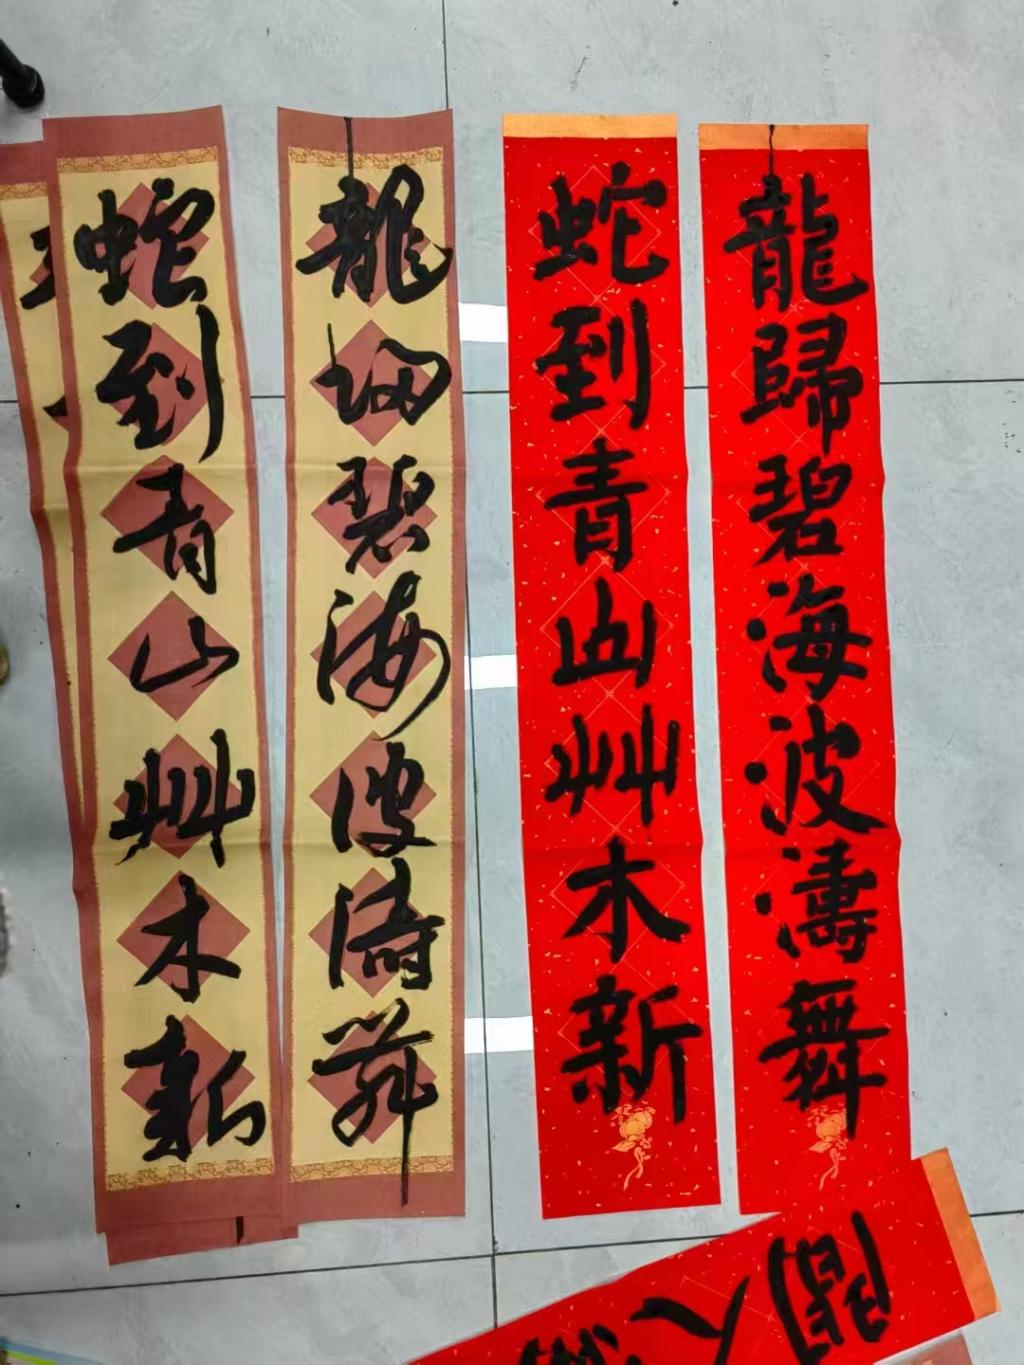 龍歸碧海波濤舞
蛇到青山艸木新
龍歸碧海波濤舞
蛇到青山艸木新
間人